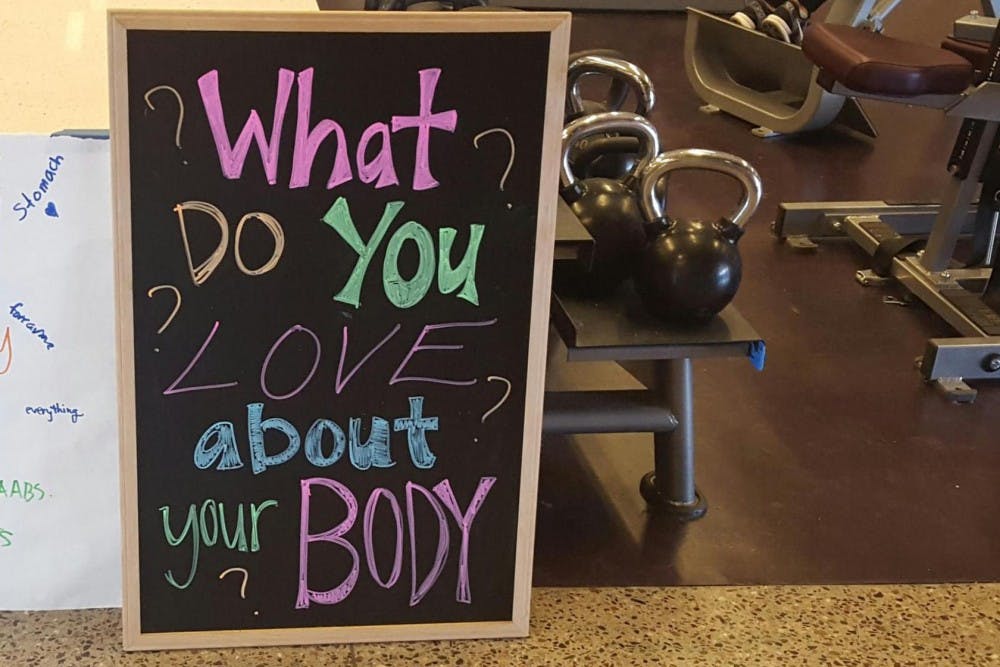 What
Do You
LOVE
about
your BODY
Stomach
everything